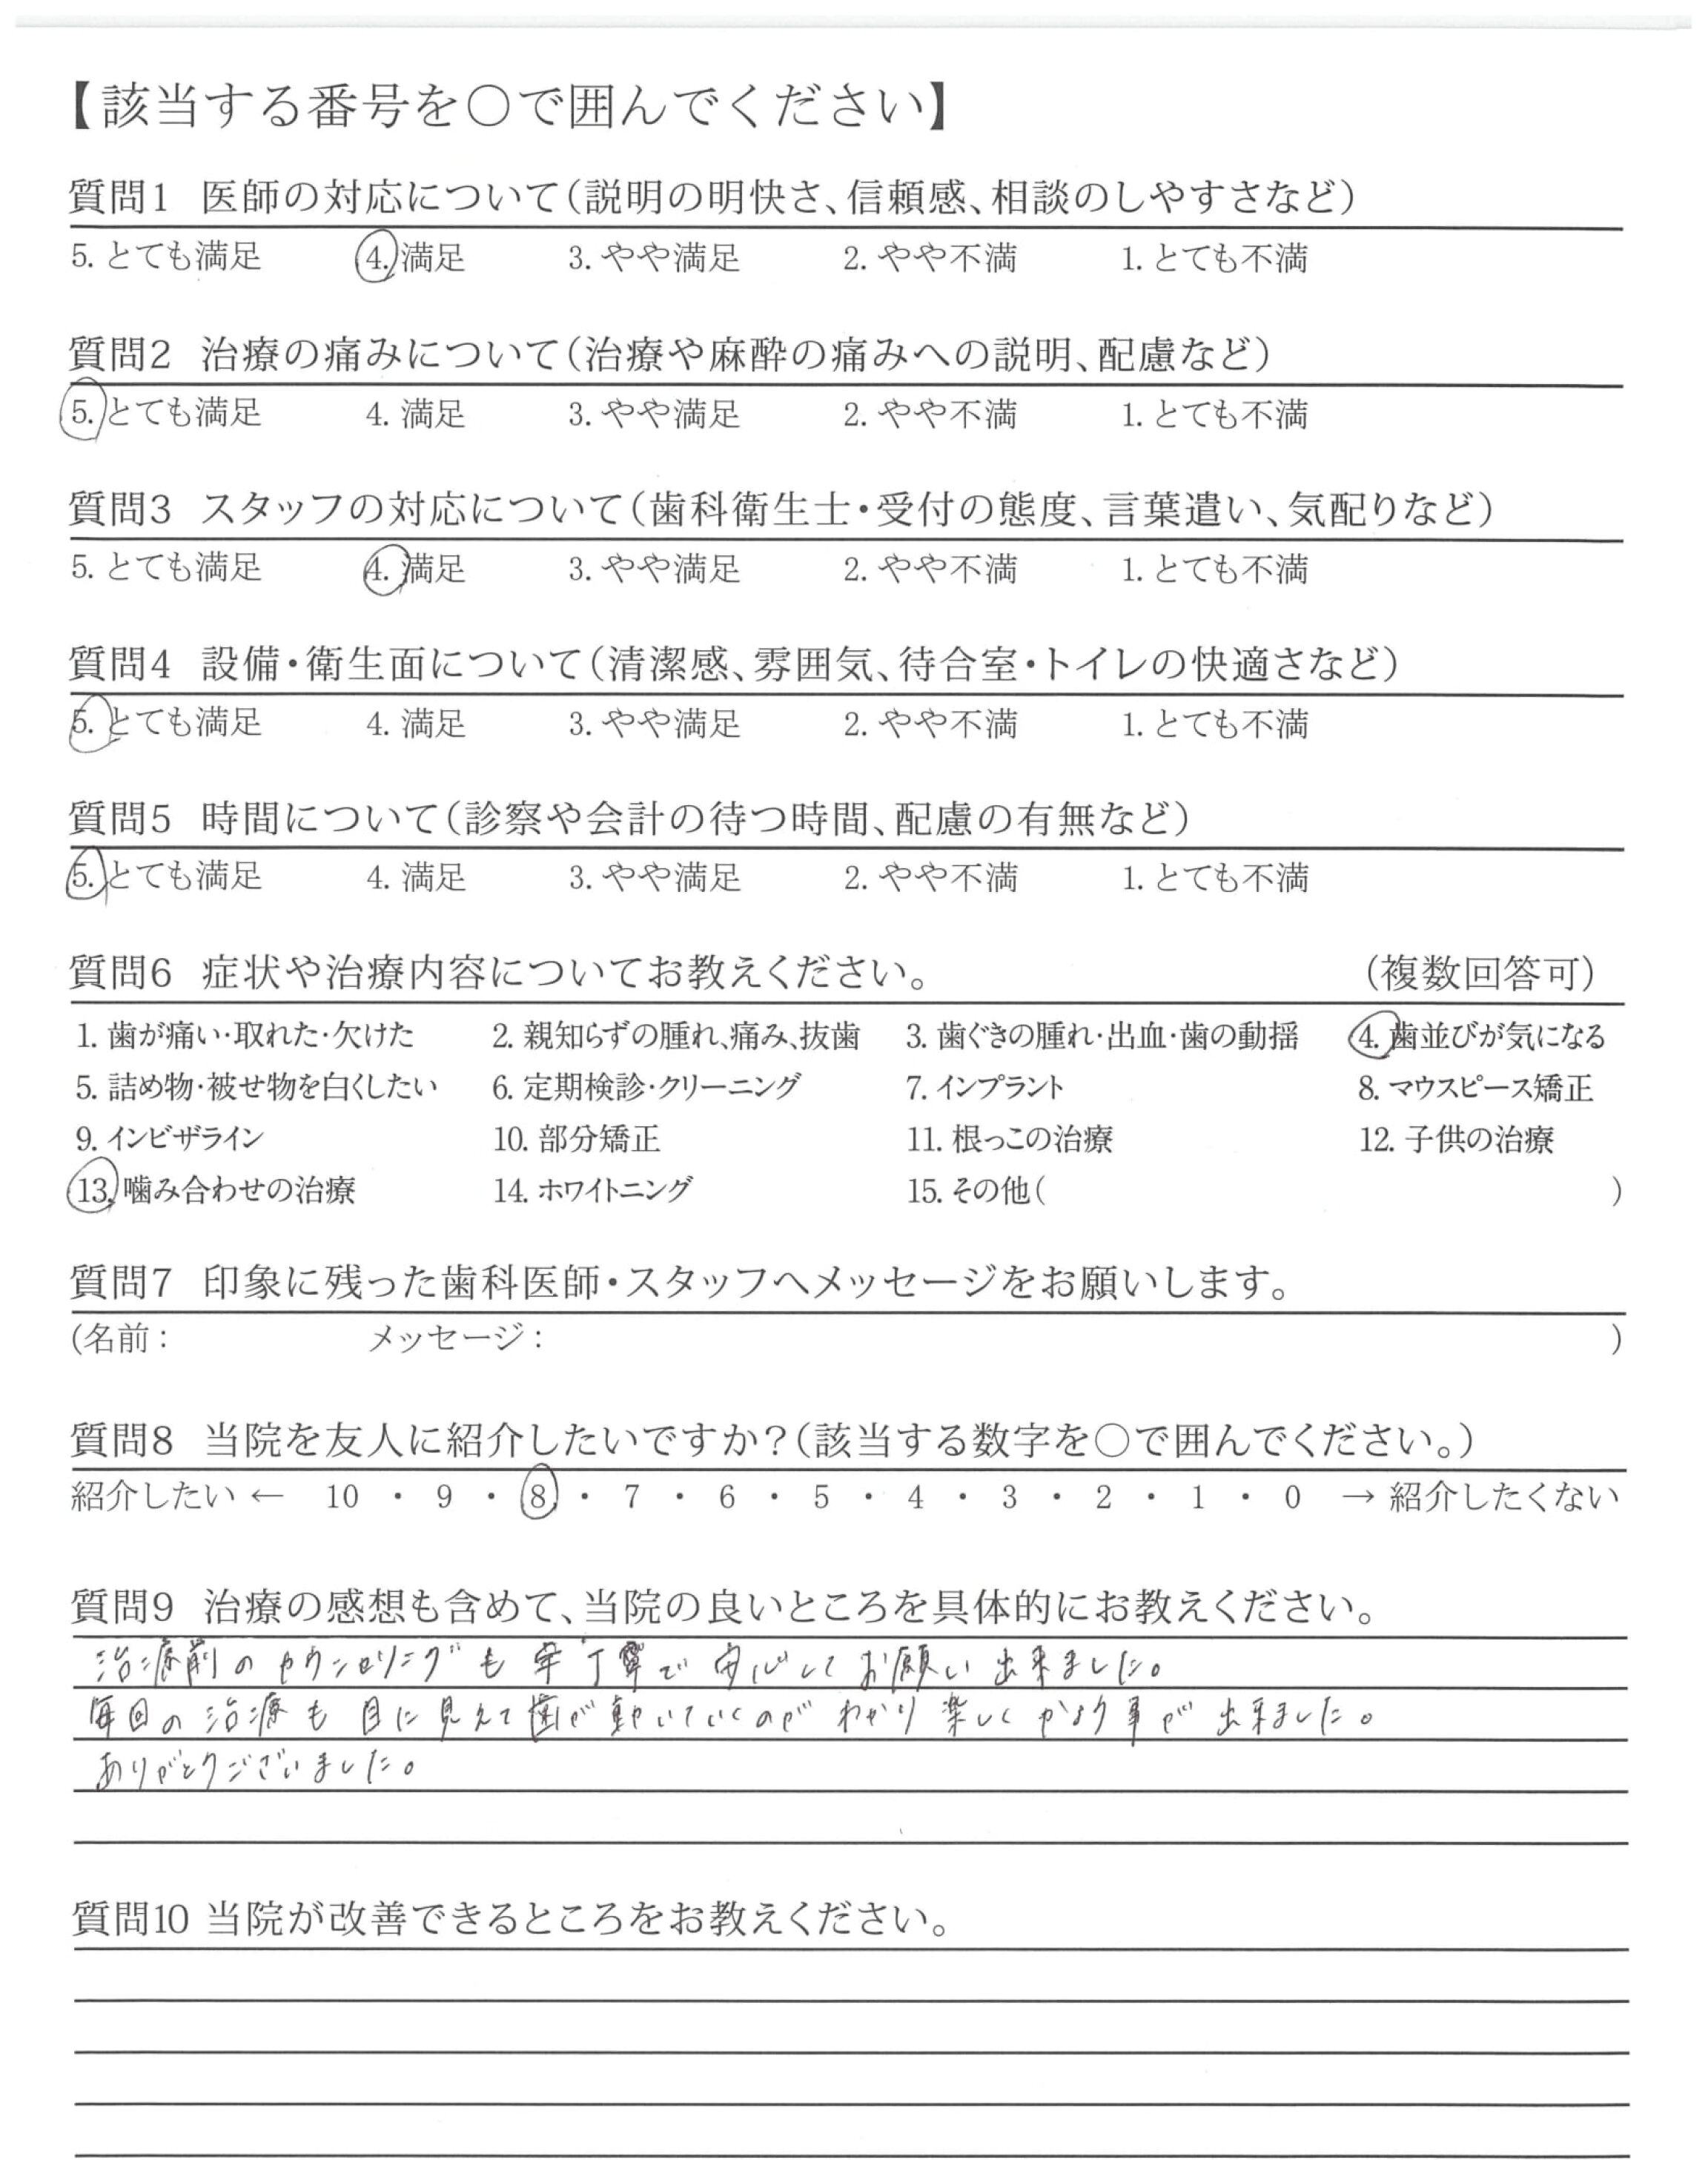 【該当する番号を○で囲んでください】
質問1 医師の対応について(説明の明快さ、信頼感、相談のしやすさなど)
5. とても満足 4. 満足 3. やや満足 2. やや不満 1. とても不満
質問2 治療の痛みについて(治療や麻酔の痛みへの説明、配慮など)
5. とても満足 4. 満足 3. やや満足 2. やや不満 1. とても不満
質問3 スタッフの対応について(歯科衛生士・受付の態度、言葉遣い、気配りなど)
5. とても満足 4. 満足 3. やや満足 2. やや不満 1. とても不満
質問4 設備・衛生面について(清潔感、雰囲気、待合室・トイレの快適さなど)
5. とても満足 4. 満足 3. やや満足 2. やや不満 1. とても不満
質問5 時間について(診察や会計の待つ時間、配慮の有無など)
5. とても満足 4. 満足 3. やや満足 2. やや不満 1. とても不満
質問6 症状や治療内容についてお教えください。 (複数回答可)
1. 歯が痛い・取れた・欠けた 2. 親知らずの腫れ、痛み、抜歯 3. 歯ぐきの腫れ・出血・歯の動揺 4. 歯並びが気になる
5. 詰め物・被せ物を白くしたい 6. 定期検診・クリーニング 7. インプラント 8. マウスピース矯正
9. インビザライン 10. 部分矯正 11. 根っこの治療 12. 子供の治療
13. 噛み合わせの治療 14. ホワイトニング 15. その他( )
質問7 印象に残った歯科医師・スタッフへメッセージをお願いします。
(名前: メッセージ: )
質問8 当院を友人に紹介したいですか?(該当する数字を○で囲んでください。)
紹介したい ← 10 ・ 9 ・ 8 ・ 7 ・ 6 ・ 5 ・ 4 ・ 3 ・ 2 ・ 1 ・ 0 → 紹介したくない
質問9 治療の感想も含めて、当院の良いところを具体的にお教えください。
治療前のカウンセリングも 丁寧で 安心してお願い出来ました。
毎回の治療も目に見えて歯が動いていくのがわかり楽しくかよう事が出来ました。
ありがとうございました。
質問10 当院が改善できるところをお教えください。